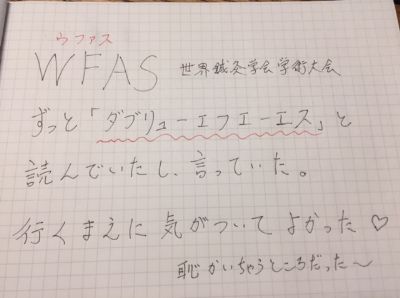 ウファス
WFAS 世界鍼灸学会学術大会
ずっと「ダブリューエフエーエス」と
読んでいたし、言っていた。
行くまえに 気がついて よかった♡
恥かいちゃうところだった〜